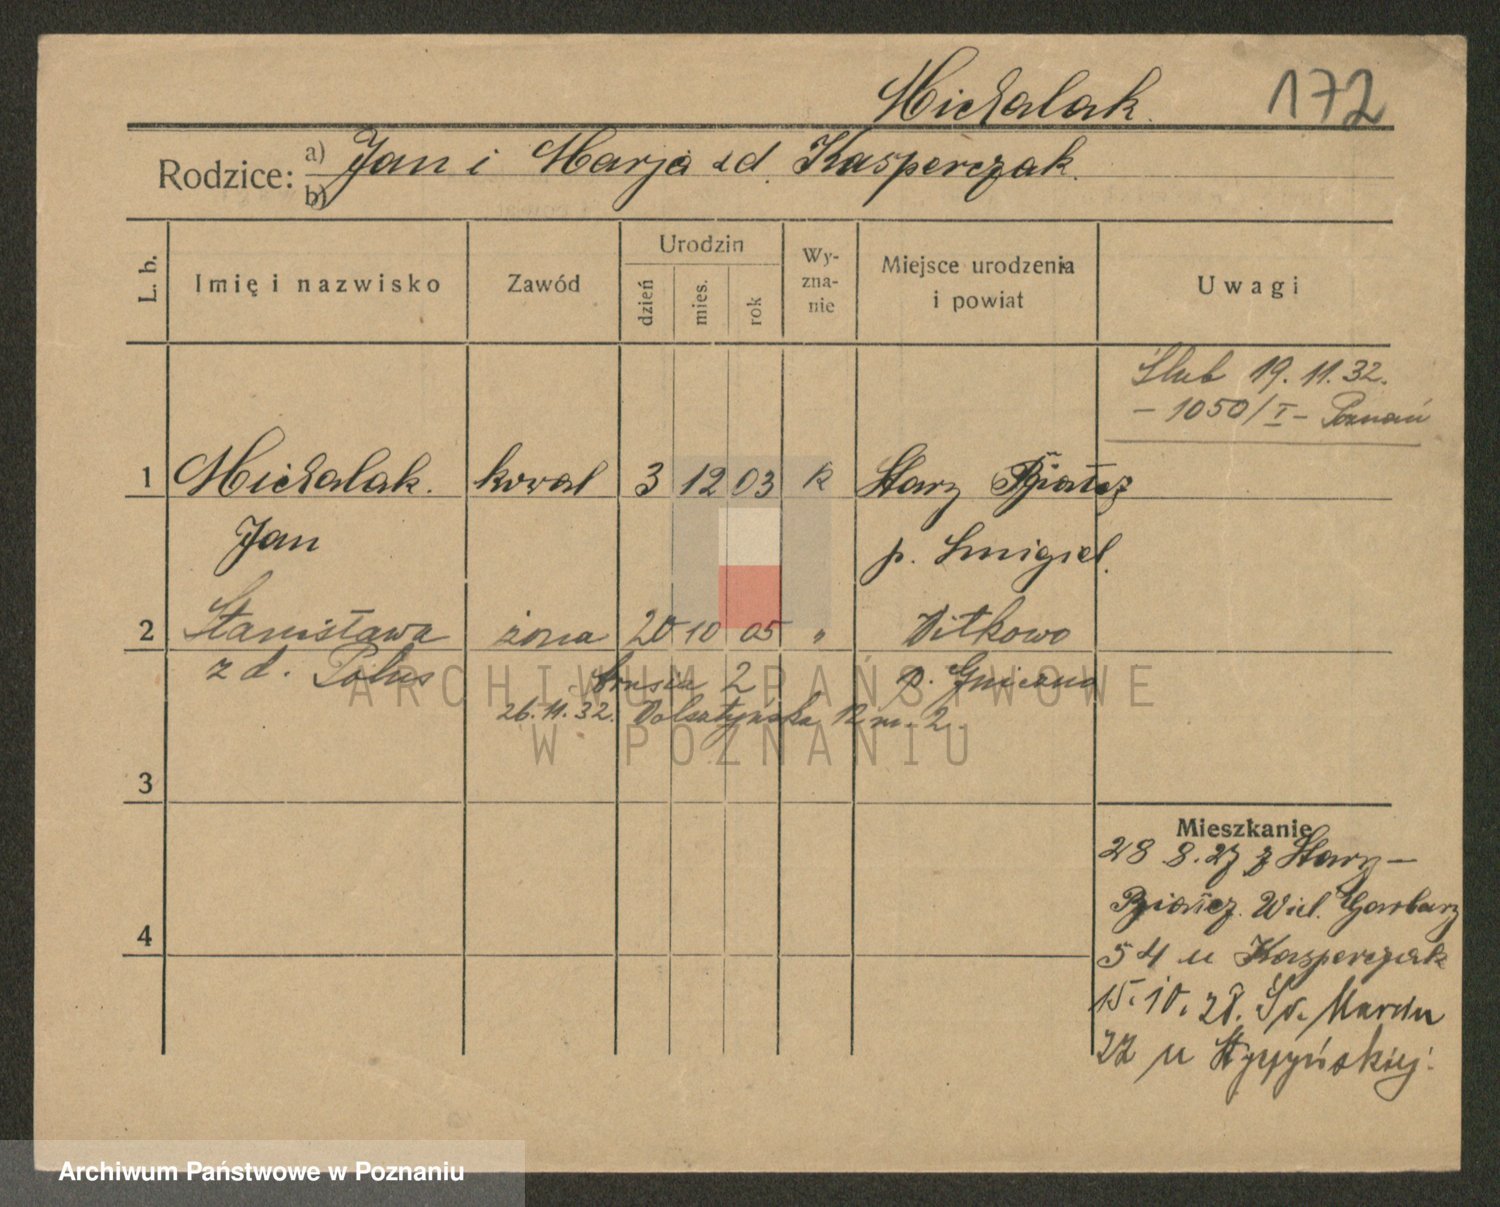 Michalak. 172
Rodzice: a) Jan i Marja z d. Kasperczak.
b)
L. b. Imię i nazwisko Zawód Urodzin dzień mies. rok Wy-zna-nie Miejsce urodzenia i powiat Uwagi
Ślub 19. 11. 32.
- 1050/I - Poznań
1 Michalak. kowal 3 12 03 k Stary
Jan p. Śmigiel.
2 Stanisława żona 20 10 05 " Witkowo
z d. Polus p. Gniezno
2
26. 11. 32. Wolsztyńska 12 m. 2.
3
Mieszkanie
28 8. 27 z Stary-
Wiel. Garbary
4
54 u Kasperczak
15. 10. 28. Św. Marcin
22 u
ARCHIWUM PAŃSTWOWE
W POZNANIU
Archiwum Państwowe w Poznaniu